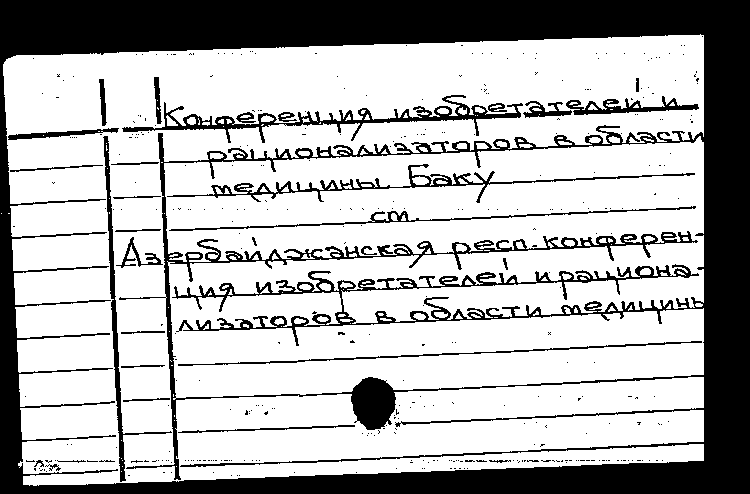 Конференция изобретателей и
рационализаторов в области
медицины. Баку
см.
Азербайджанская респ. конферен-
ция изобретателей и рациона-
лизаторов в области медицины